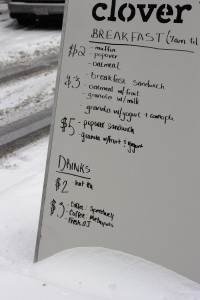 clover
BREAKFAST (7am til
$2 - muffin
- popover
- oatmeal
$3 - breakfast sandwich
- oatmeal w/fruit
- granola w/milk
- granola w/yogurt +
$5 - popover sandwich
- granola w/fruit + yogurt
DRINKS
$2 hot tea
$3 - Coffee:
- Coffee:
- Fresh OJ